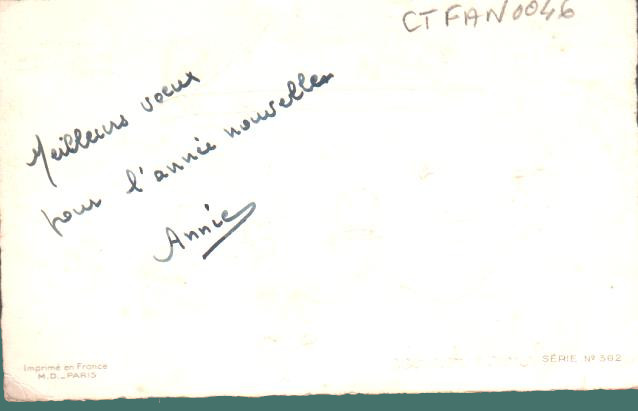 CTFAN0046
Meilleurs voeux
pour l'année nouvelle
Annie
Imprimé en France
M.D._PARIS
SÉRIE Nº 502